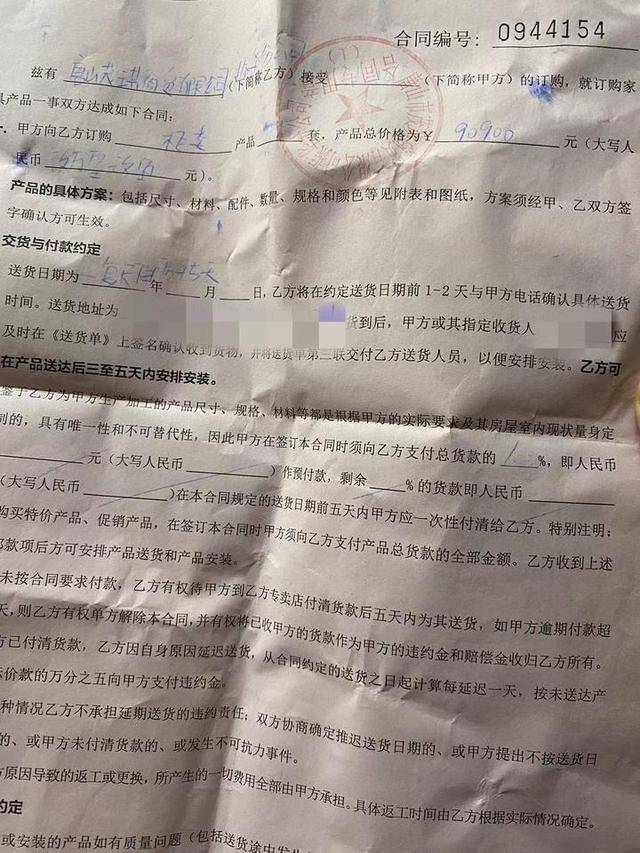 合同编号: 0944154
兹有 (下简称乙方) 接受 (下简称甲方) 的订购, 就订购家
具产品一事双方达成如下合同:
一、甲方向乙方订购 柜类 产品 套, 产品总价格为¥ 90900 元 (大写人
民币 元)。
产品的具体方案: 包括尺寸、材料、配件、数量、规格和颜色等见附表和图纸, 方案须经甲、乙双方签
字确认方可生效。
交货与付款约定
送货日期为 年 月 日, 乙方将在约定送货日期前 1-2 天与甲方电话确认具体送货
时间。送货地址为 货到后, 甲方或其指定收货人 应
及时在《送货单》上签名确认收到货物, 并将送货单第三联交付乙方送货人员, 以便安排安装。乙方可
在产品送达后三至五天内安排安装。
鉴于乙方为甲方生产加工的产品尺寸、规格、材料等都是根据甲方的实际要求及其房屋室内现状量身定
制的, 具有唯一性和不可替代性, 因此甲方在签订本合同时须向乙方支付总货款的 %, 即人民币
元 (大写人民币 ) 作预付款, 剩余 % 的货款即人民币
(大写人民币 ) 在本合同规定的送货日期前五天内甲方应一次性付清给乙方。特别注明:
购买特价产品、促销产品, 在签订本合同时甲方须向乙方支付产品总货款的全部金额。乙方收到上述
款项后方可安排产品送货和产品安装。
未按合同要求付款, 乙方有权待甲方到乙方专卖店付清货款后五天内为其送货, 如甲方逾期付款超
天, 则乙方有权单方解除本合同, 并有权将已收甲方的货款作为甲方的违约金和赔偿金收归乙方所有。
方已付清货款, 乙方因自身原因延迟送货, 从合同约定的送货之日起计算每延迟一天, 按未送达产
价款的万分之五向甲方支付违约金。
种情况乙方不承担延期送货的违约责任: 双方协商确定推迟送货日期的、或甲方提出不按送货日
的、或甲方未付清货款的、或发生不可抗力事件。
方原因导致的返工或更换, 所产生的一切费用全部由甲方承担。具体返工时间由乙方根据实际情况确定。
约定
或安装的产品如有质量问题 (包括送货途中发生